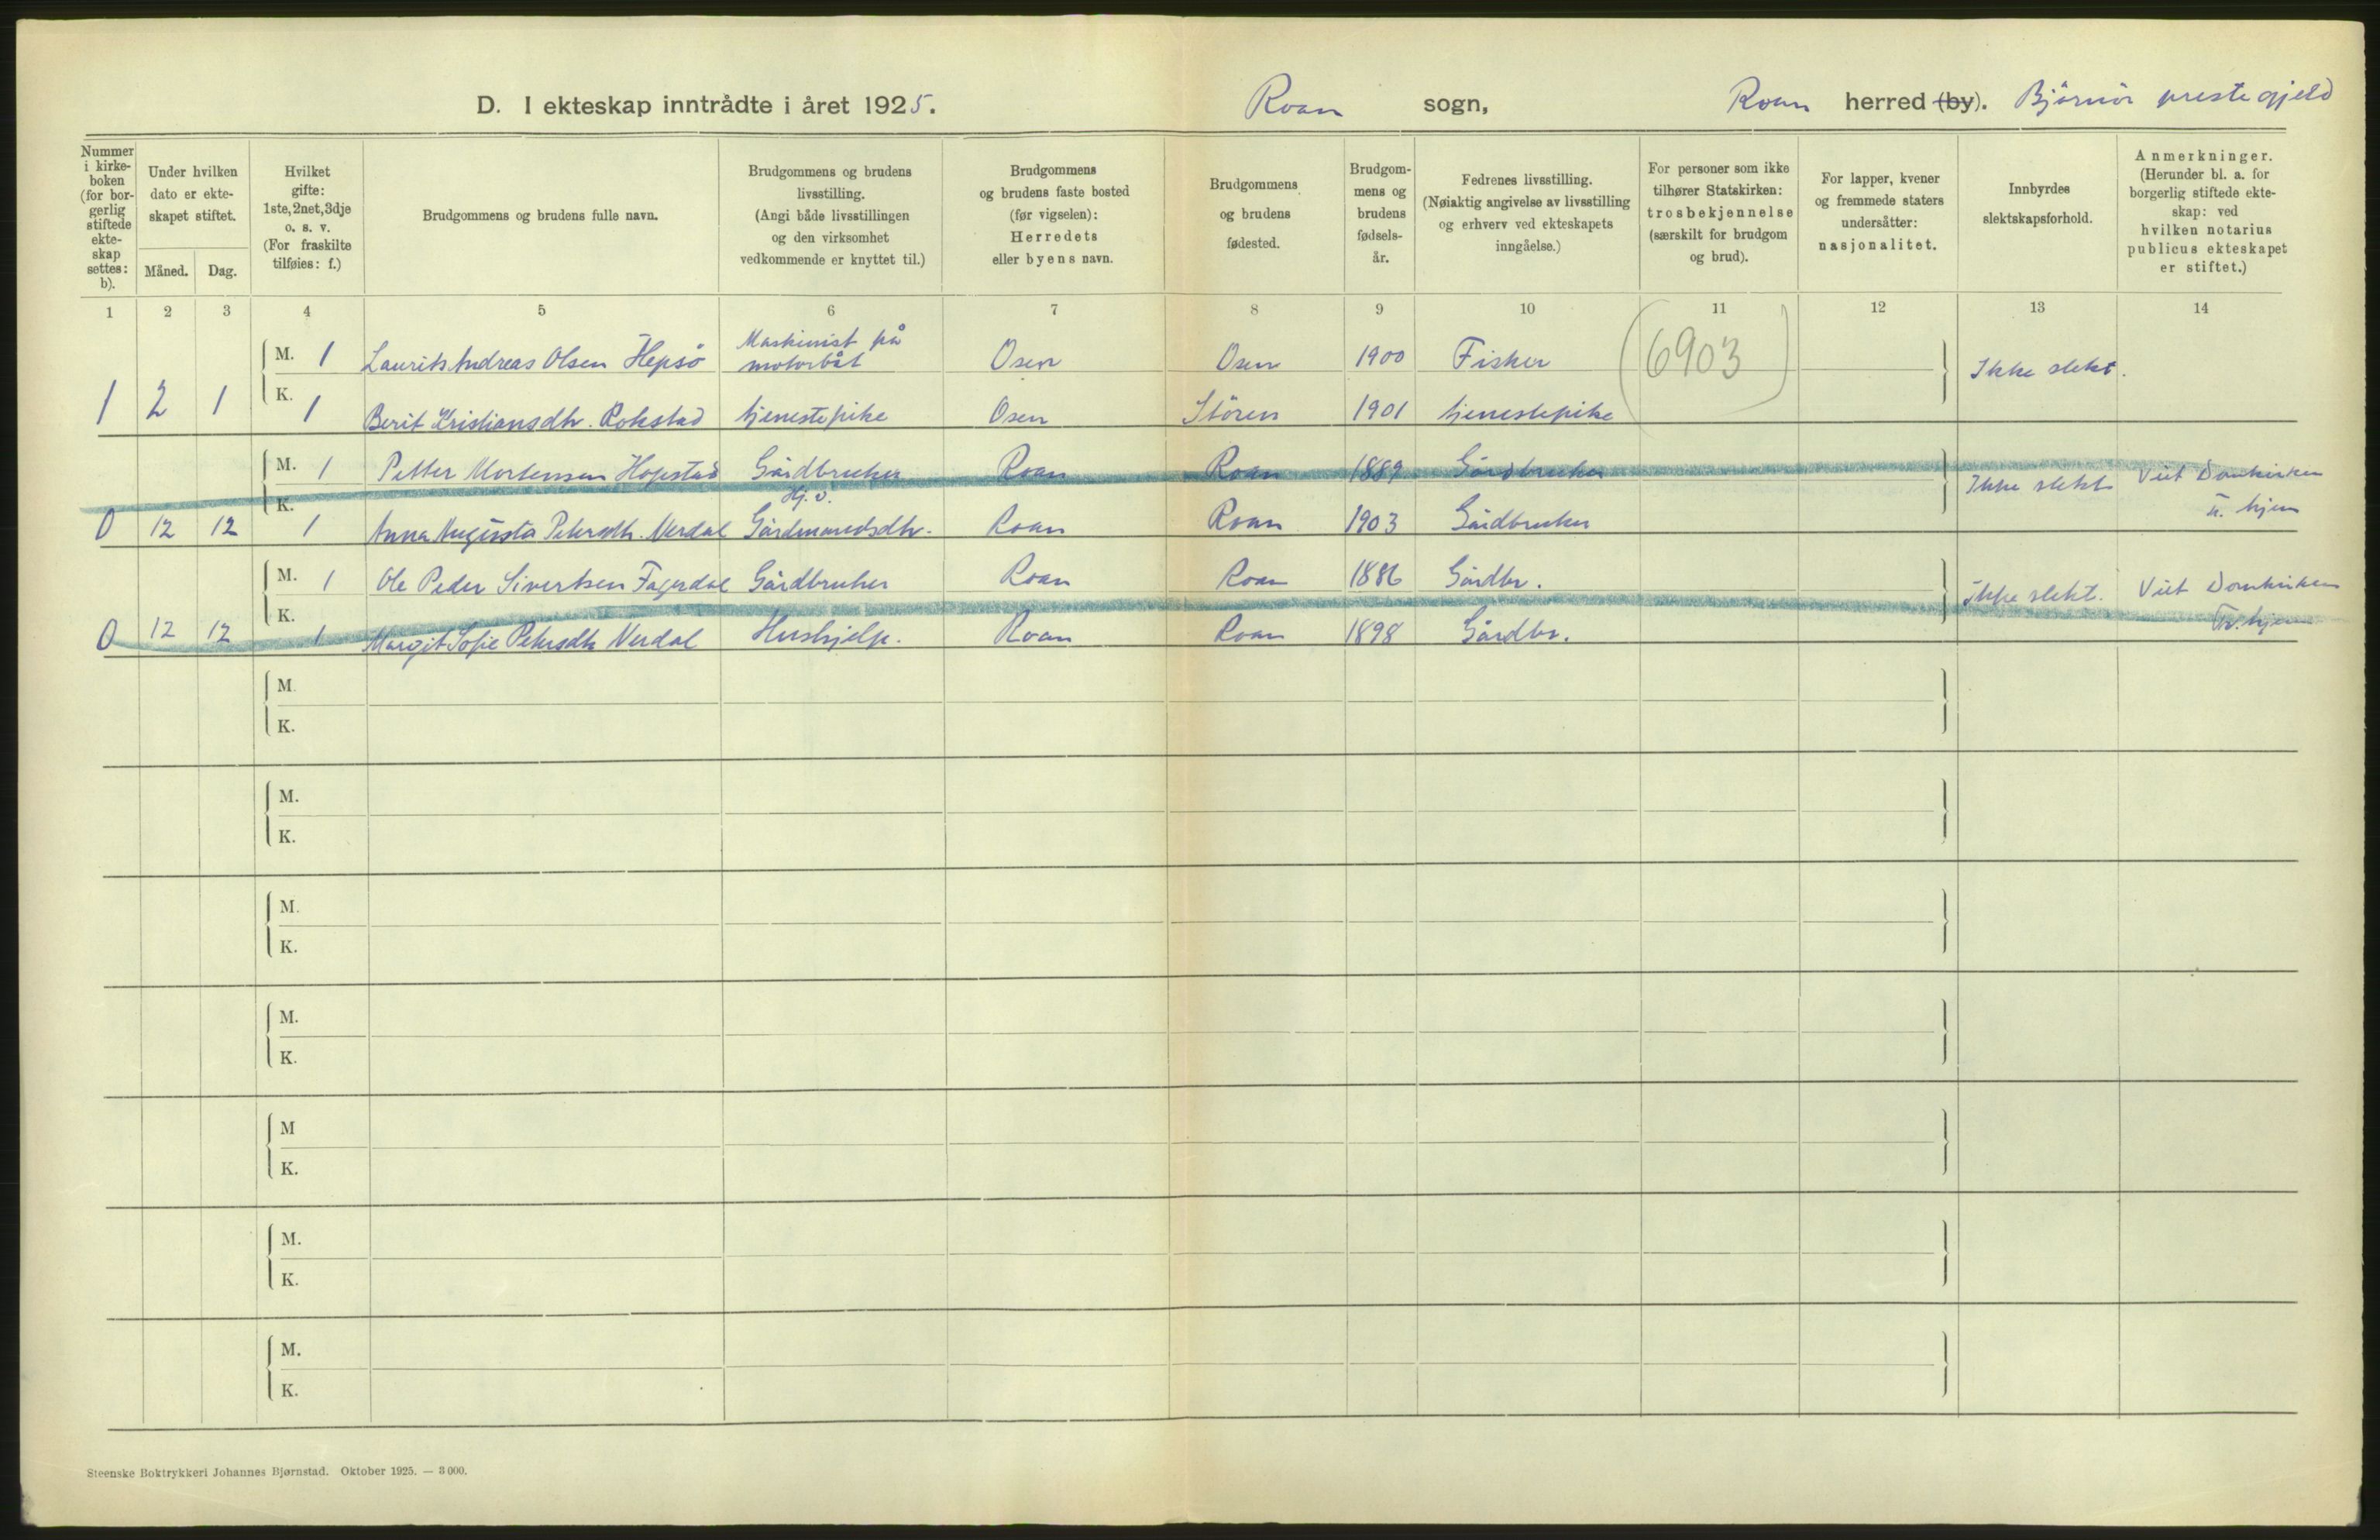 D. I ekteskap inntrådte i året 1925. Roan sogn, Roan herred (by). Björnör prestegjeld
Nummer i kirke- boken (for bor- gerlig stiftede ekte- skap settes: b).
Under hvilken dato er ekte- skapet stiftet.
Måned. Dag.
Hvilket gifte: 1ste, 2net, 3dje o. s. v. (For fraskilte tilføies: f.)
Brudgommens og brudens fulle navn.
Brudgommens og brudens livsstilling. (Angi både livsstillingen og den virksomhet vedkommende er knyttet til.)
Brudgommens og brudens faste bosted (før vigselen): Herredets eller byens navn.
Brudgommens og brudens fødested.
Brudgom- mens og brudens fødsels- år.
Fedrenes livsstilling. (Nøiaktig angivelse av livsstilling og erhverv ved ekteskapets inngåelse.)
For personer som ikke tilhører Statskirken: trosbekjennelse (særskilt for brudgom og brud).
For lapper, kvener og fremmede staters undersåtter: nasjonalitet.
Innbyrdes slektskapsforhold.
Anmerkninger. (Herunder bl. a. for borgerlig stiftede ekte- skap: ved hvilken notarius publicus ekteskapet er stiftet.)
1 2 3 4 5 6 7 8 9 10 11 12 13 14
M. 1 Laurits Andreas Olsen Hepsö Maskinist på motorbåt Osen Osen 1900 Fisker (6903) Ikke slekt.
1 2 1 K. 1 Berit Kristiansdtr. Rokstad tjenestepike Osen Stören 1901 tjenestepike
M. 1 Petter Mortensen Hopstad Gårdbruker Roan Roan 1889 Gårdbruker Ikke slekt Viet Domkirken
Hj. d.
0 12 12 K. 1 Anna Augusta Petersdtr. Nerdal Gårdmandsdtr. Roan Roan 1903 Gårdbruker hjem
M. 1 Ole Peder Sivertsen Fagerdal Gårdbruker Roan Roan 1886 Gårdbr. Ikke slekt. Viet Domkirken
0 12 12 K. 1 Margit Sofie Petersdtr Nerdal Hushjelp. Roan Roan 1898 Gårdbr. Tr.hjem
M.
K.
M.
K.
M.
K.
M.
K.
M
K.
M.
K.
M.
K.
Steenske Boktrykkeri Johannes Bjørnstad. Oktober 1925. — 3 000.